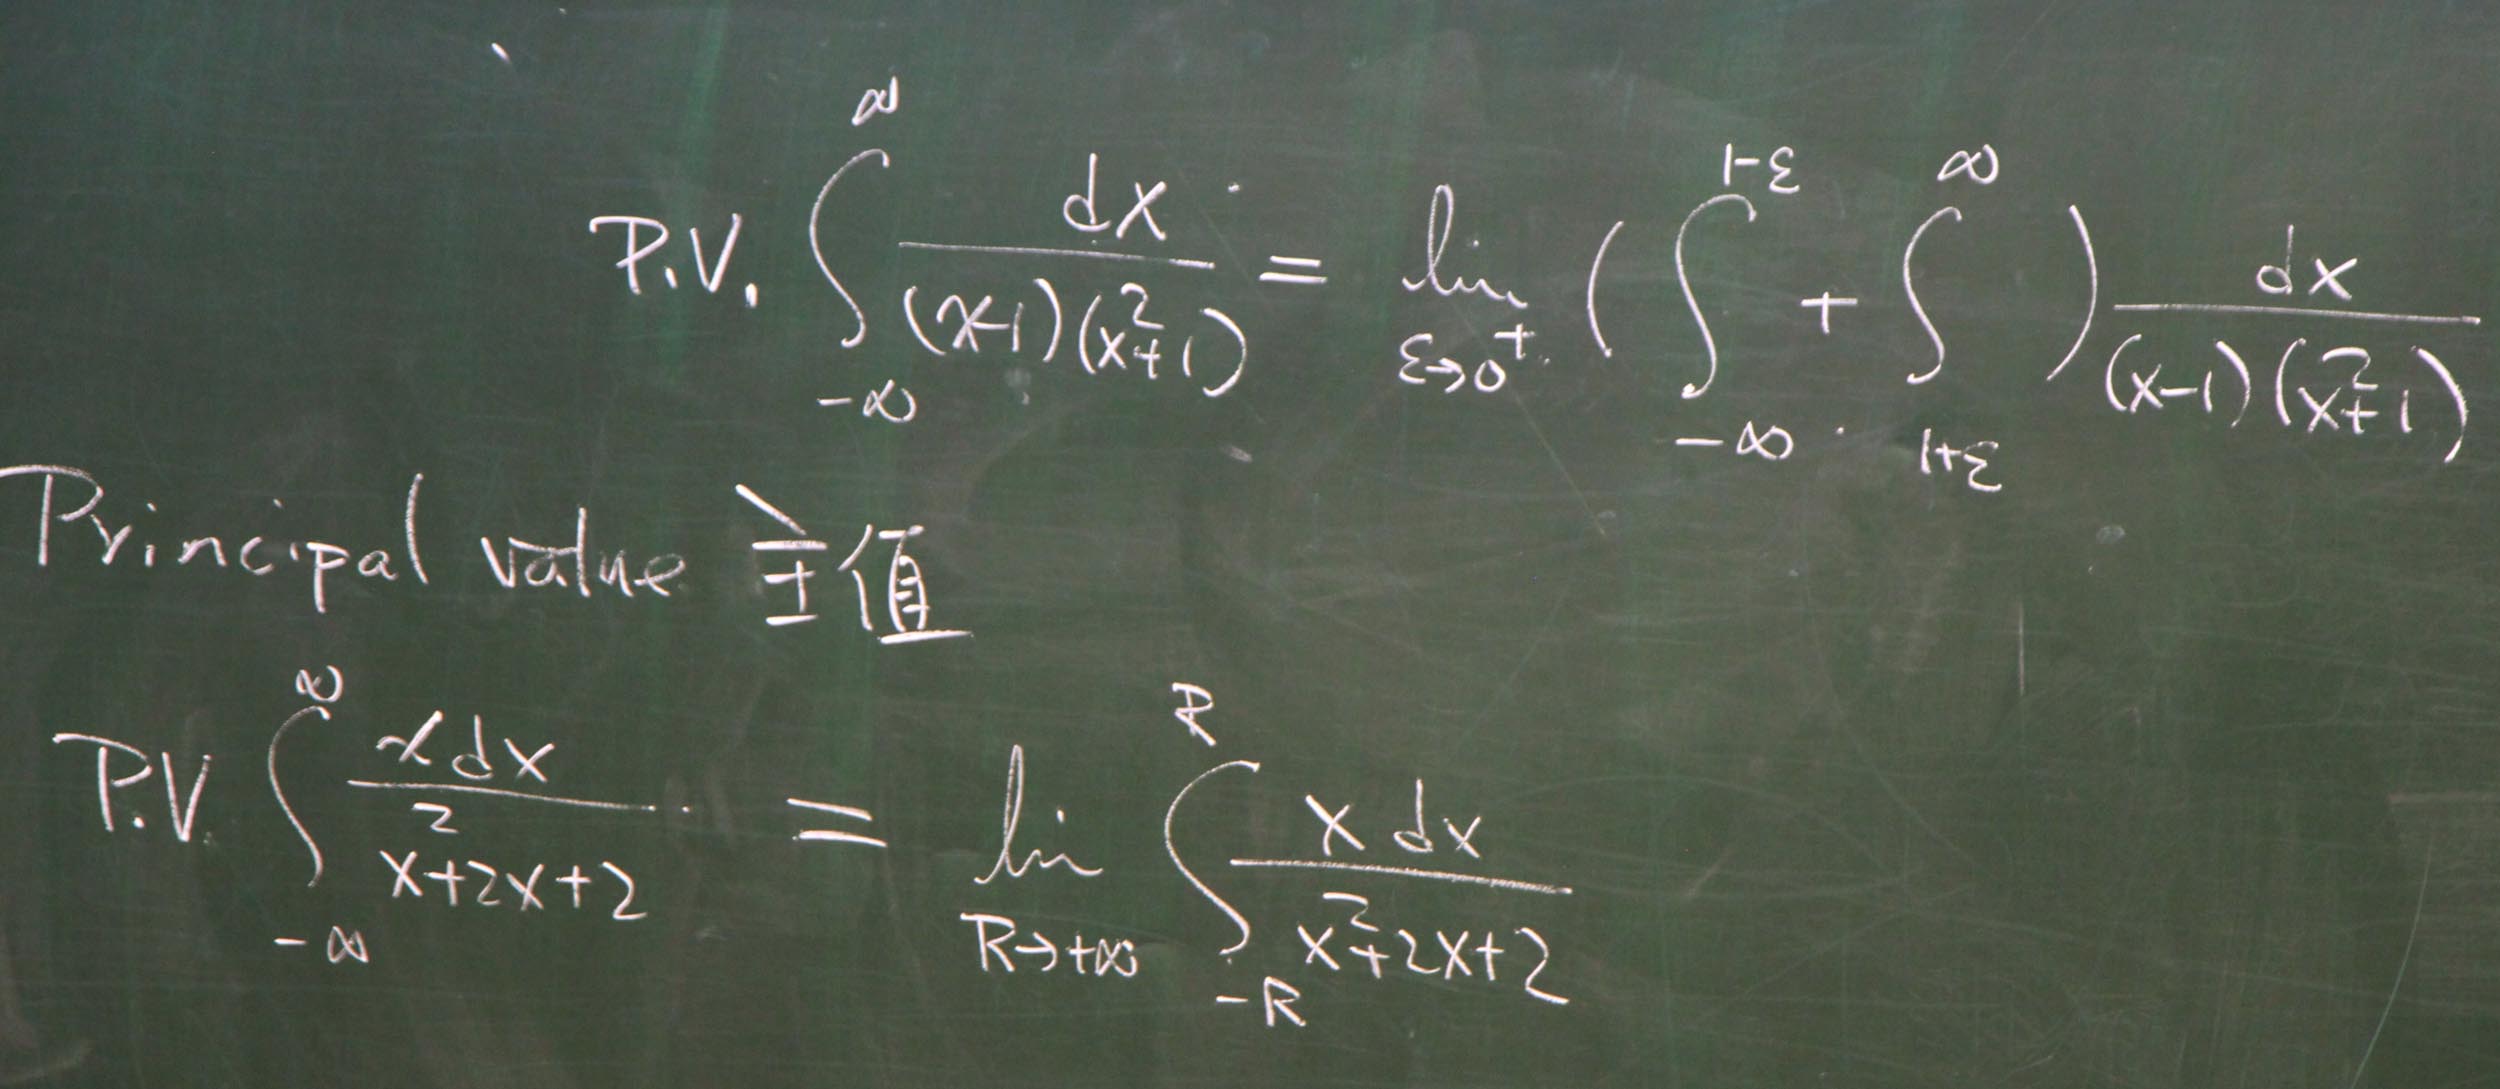 P.V. ∫_{-∞}^{∞} dx/((x-1)(x²+1)) = lim_{ε→0⁺} (∫_{-∞}^{1-ε} + ∫_{1+ε}^{∞}) dx/((x-1)(x²+1))
Principal value 主值
P.V. ∫_{-∞}^{∞} x dx/(x²+2x+2) = lim_{R→+∞} ∫_{-R}^{R} x dx/(x²+2x+2)